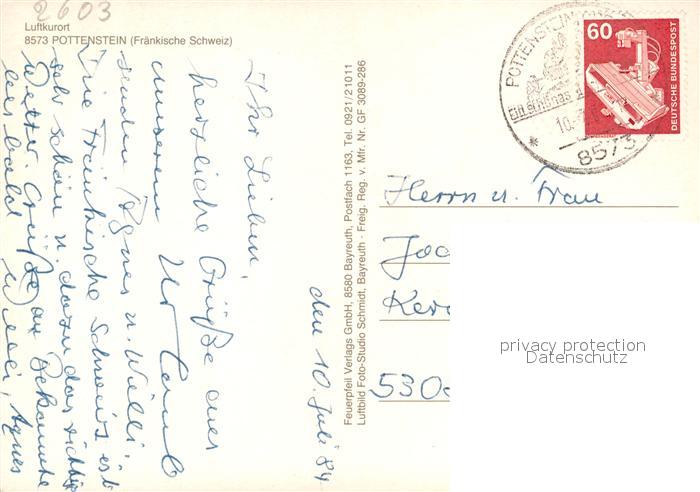 2603
Luftkurort
8573 POTTENSTEIN (Fränkische Schweiz)
den 10. Juli 84
Ihr Lieben,
herzliche Grüße aus
unserem Urlaub
senden Agnes u. Willi.
Die Fränkische Schweiz ist
sehr schön u. dazu das richtige
Wetter. Grüße an Bekannte
bis bald Willi, Agnes
Feuerpfeil Verlags GmbH, 8580 Bayreuth, Postfach 1163, Tel. 0921/21011
Luftbild Foto-Studio Schmidt, Bayreuth · Freig. Reg. v. Mfr. Nr. GF 3089-286
POTTENSTEIN
10.
8573
60
DEUTSCHE BUNDESPOST
Herrn u. Frau
privacy protection
Datenschutz